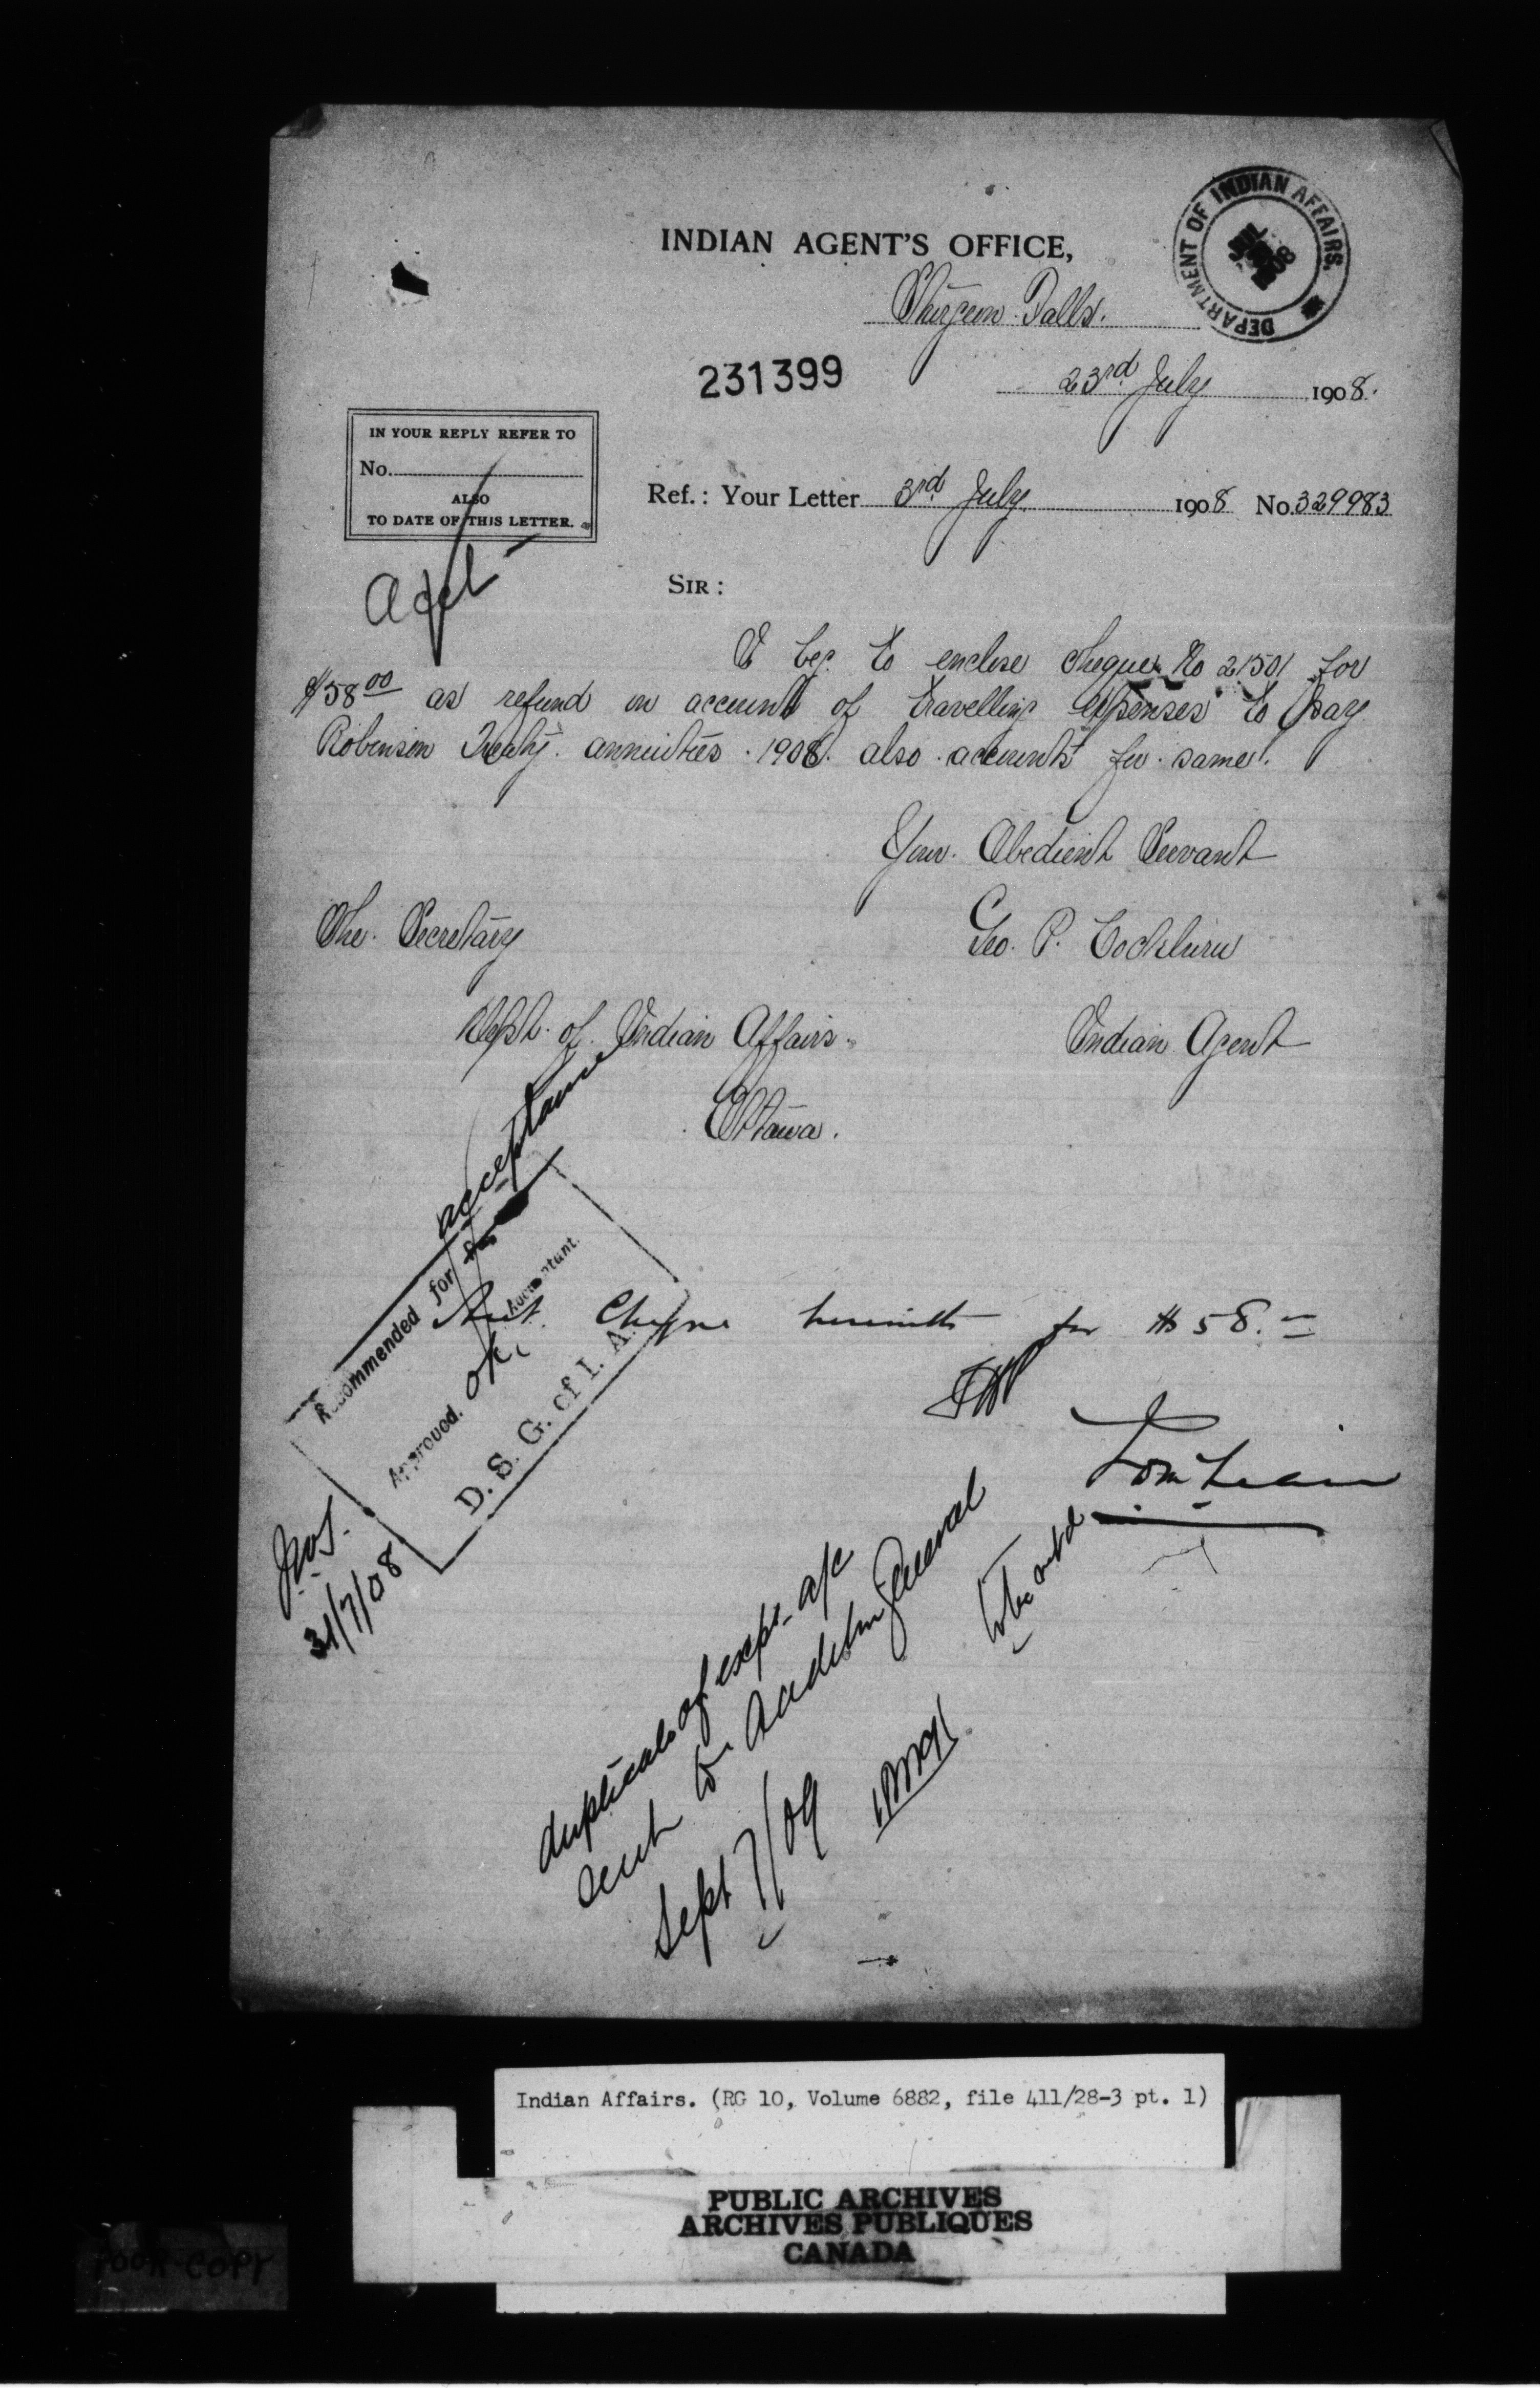 INDIAN AGENT'S OFFICE,
DEPARTMENT OF INDIAN AFFAIRS.
Sturgeon Falls.
231399
23rd July 1908.
IN YOUR REPLY REFER TO
No.
ALSO
TO DATE OF THIS LETTER.
Ref.: Your Letter 3rd July 1908 No. 329983
SIR:
I beg to enclose cheque No 21501 for
$58 00 as refund on account of travelling expenses to pay
Robinson Treaty annuities 1908. also accounts for same.
Your Obedient Servant
The Secretary
Geo. P. Cockburn
Dept. of Indian Affairs
Indian Agent
Ottawa.
Recommended for acceptance
Accountant.
Approved. OK
D. S. G. of I. A.
31/7/08
Cheque herewith for $58.-
duplicate of exps a/c
sent to Auditor General
Sept 7/09
Indian Affairs. (RG 10, Volume 6882, file 411/28-3 pt. 1)
PUBLIC ARCHIVES
ARCHIVES PUBLIQUES
CANADA
POOR COPY